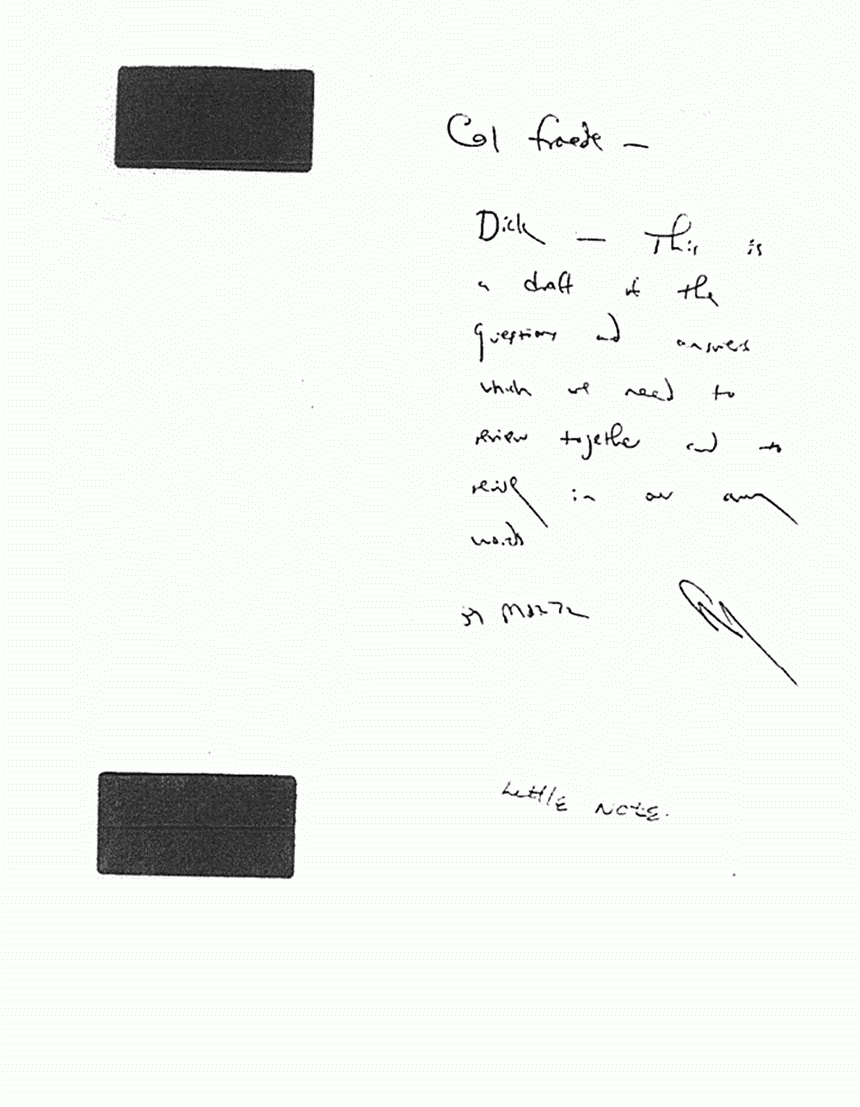 Col Froede —
Dick — This is
a draft of the
questions and answers
which we need to
review together and to
revise in our
words
Little NOTE.